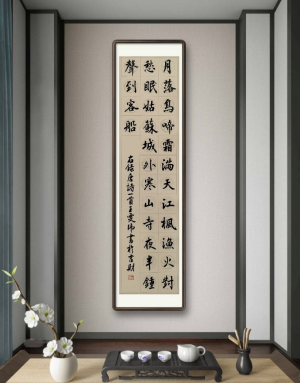 月落烏啼霜滿天江楓漁火對
愁眠姑蘇城外寒山寺夜半鐘
聲到客船
右錄唐詩一首